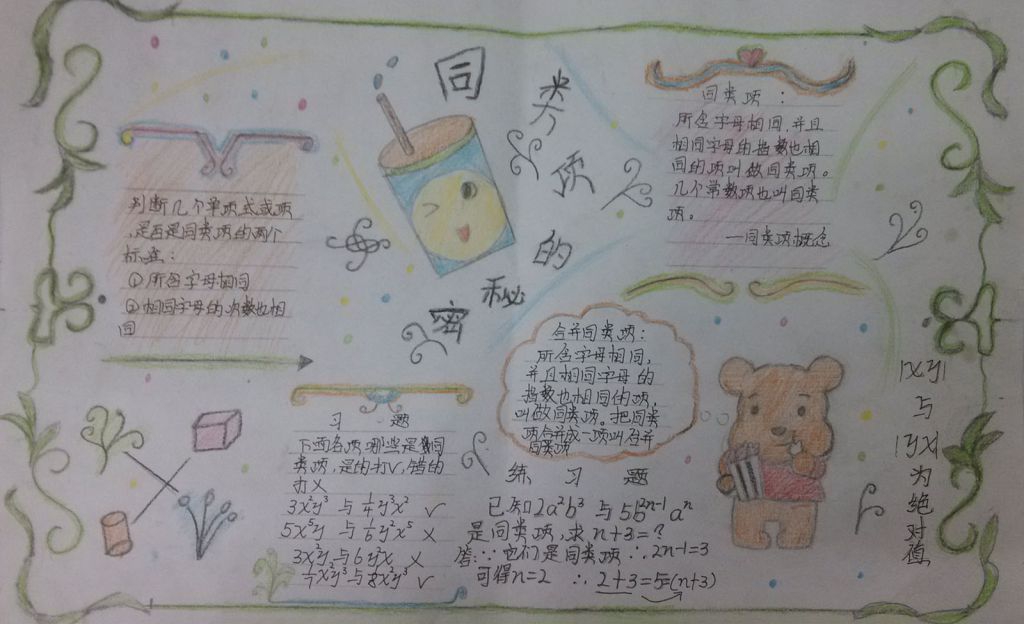 同类项的秘密
判断几个单项式或项
是否是同类项的两个
标准：
①所含字母相同
②相同字母的次数也相
同
同类项：
所含字母相同，并且
相同字母的指数也相
同的项叫做同类项。
几个常数项也叫同类
项。
—同类项概念
合并同类项：
所含字母相同，
并且相同字母的
指数也相同的项，
叫做同类项。把同类
项合并成一项叫合并
同类项
习题
下面各项哪些是同
类项，是的打√，错的
打×
3x²y³与¼y³x² √
5x⁵y与⅙y²x⁵ ×
3x²y与6y²x ×
x²y³与8x²y³ √
练习题
已知2a²b³与5b²ⁿ⁻¹aⁿ
是同类项，求n+3=?
答：∵它们是同类项∴2n-1=3
可得n=2 ∴2+3=5=(n+3)
|xy|
与
|yx|
为
绝
对
值